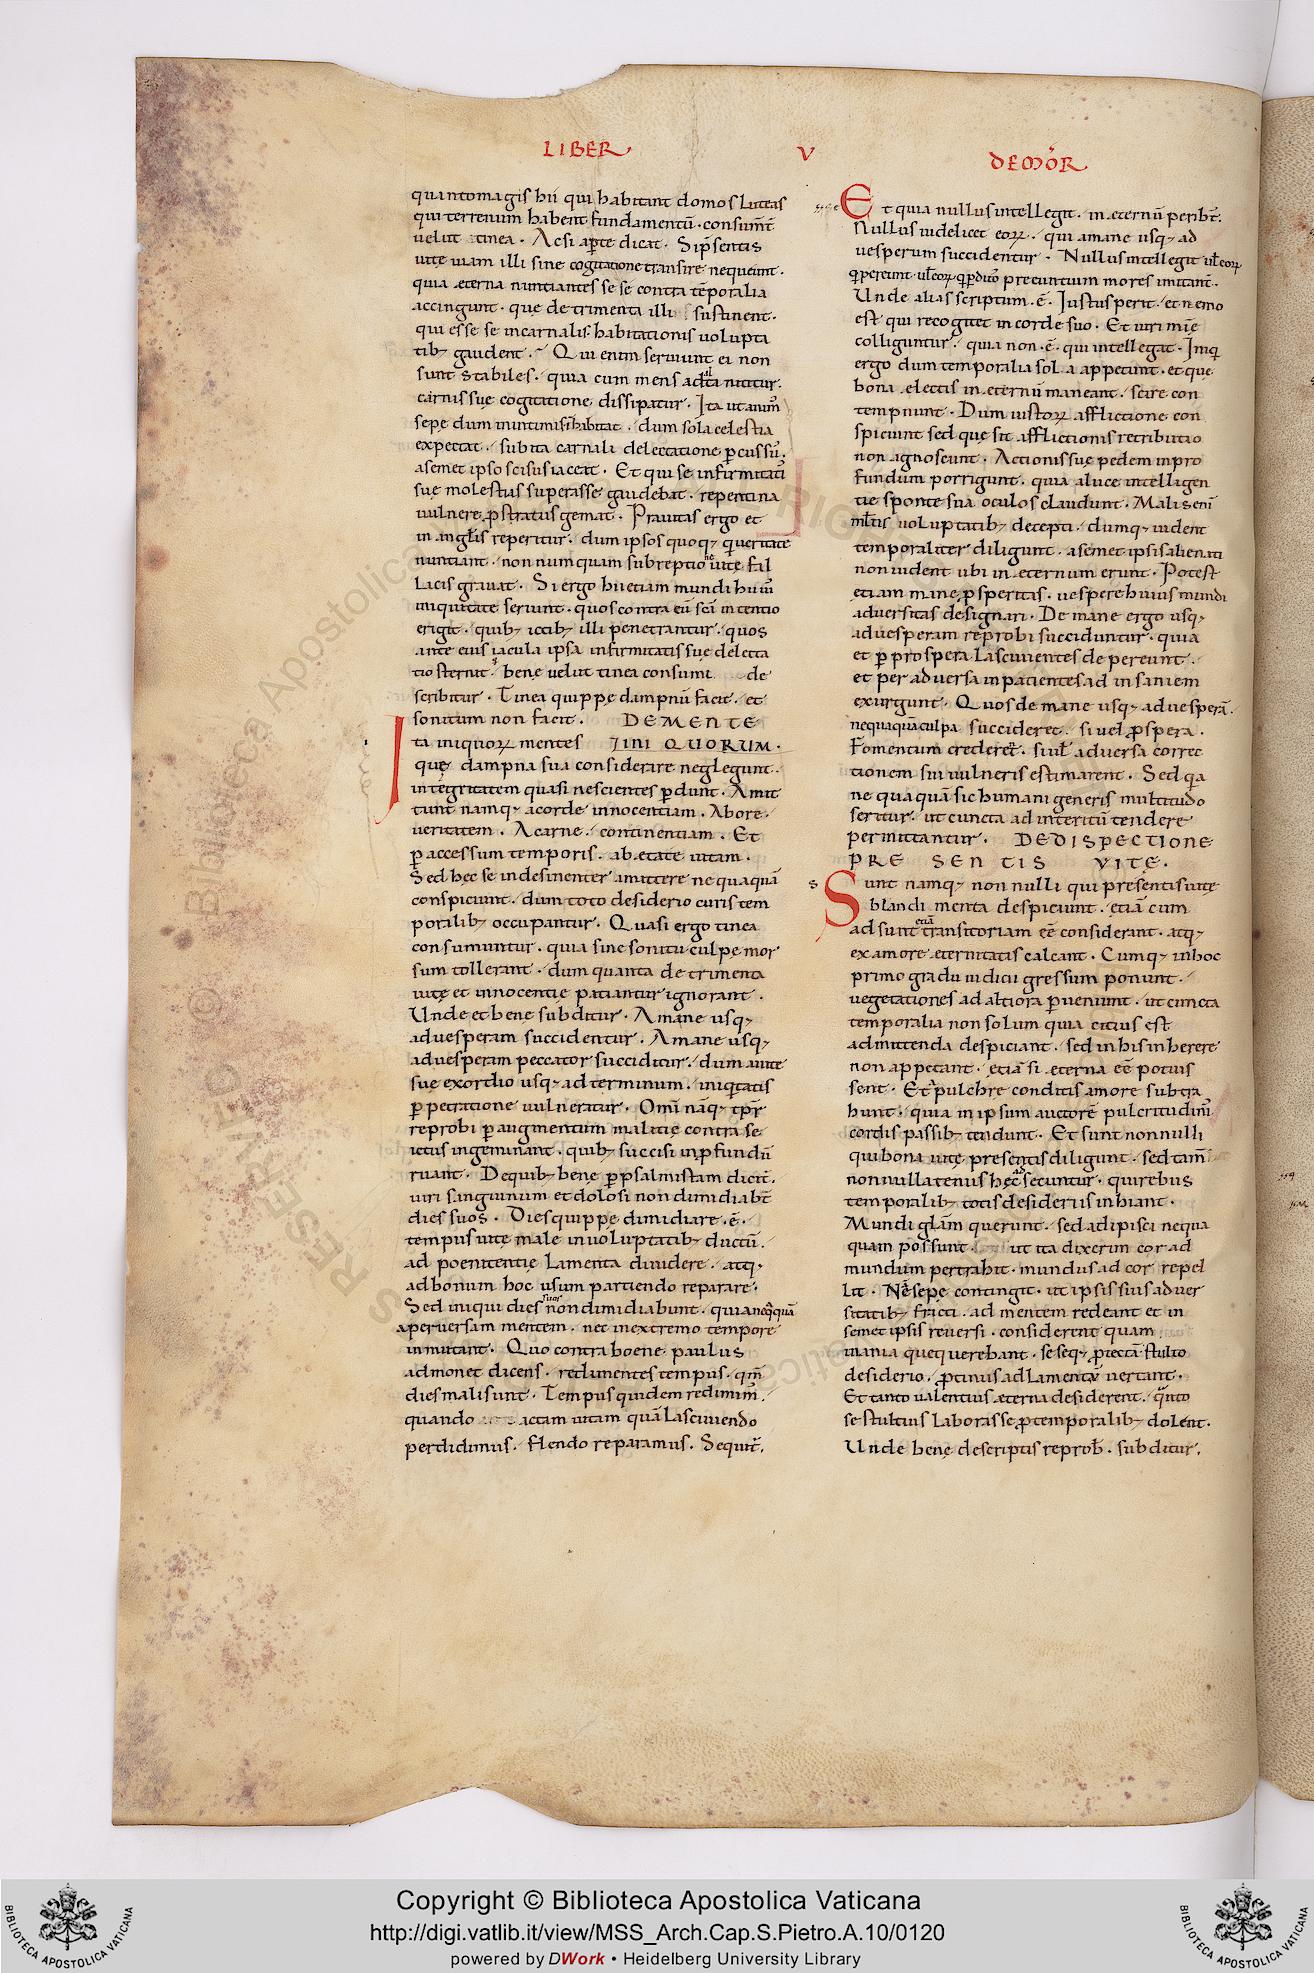 LIBER V DEMOR̄
quantomagis hii qui habitant domos luteas
qui terrenum habent fundamentū · consumt̄
velut tinea · Acsi aꝑte dicat · Si p̄sentis
uitę uiam illi sine cogitatione transire nequeunt ·
quia ęterna nuntiantes se se contra tēporalia
accingunt · que detrimenta illi sustinent ·
qui esse se incarnalis habitationis uolupta
tib; gaudent · Qui enim seruiunt ei non
sunt stabiles · quia cum mens ad nititur ·
carnis suę cogitatione dissipatur · Ita ut
sepe dum inintimis habitat · dum sola celestia
expectat · subita carnali delectatione ꝑcussū ·
asemet ipso scisus iaceat · Et qui se infirmitati
suę molestus superasse gaudebat · repentina
uulnere ꝓstratus gemat · Prauitas ergo et
in anglis reperitur · dum ipsos quoq; q ueritate
nuntiant · non numquam subreptio uitę fal
lacis grauat · Si ergo hii etiam mundi hui
iniquitate feriunt · quos contra eū sci intentio
erigit · quib; ictib; illi penetrantur · quos
ante eius iacula ipsa infirmitatis suę delecta
tio sternit · bene velut tinea consumi de
scribitur · Tinea quippe dampnū facit · et
sonitum non facit · DEMENTE
Ita iniquoꝝ mentes INI QUORUM ·
quę dampna sua considerare neglegunt ·
integritatem quasi nescientes ꝑdunt · Amit
tunt namq; acorde innocentiam · Abore ·
ueritatem · Acarne · continentiam · Et
ꝑ accessum temporis · ab ętate uitam ·
Sed hęc se indesinenter amittere ne quaquā
conspiciunt · dum toto desiderio curis tem
poralib; occupantur · Quasi ergo tinea
consumuntur · quia sine sonitu culpę mor
sum tollerant · dum quanta detrimenta
uitę et innocentię patiantur ignorant ·
Unde et bene subditur · Amane usq;
aduesperam succidentur · Amane usq;
aduesperam peccator succiditur · dum auite
suę exordio usq; ad terminum · iniqtatis
ꝑpetratione uulneratur · Omī nāq; tp̄r
reprobi ꝑ augmentum malitię contra se
ictus ingeminant · quib; succisi in ꝓfundū
ruant · De quib; bene ꝑ psalmistam dicit̄ ·
uiri sanguinum et dolosi non dimidiabt̄
dies suos · Dies quippe dimidiare · ē ·
tempus uitę male in uoluptatib; ductū ·
ad poenitentię lamenta diuidere · atq;
ad bonum hoc usum partiendo reparare ·
Sed iniqui dies suos non dimidiabunt · quia neq̄quā
aperuersam mentem · nec inextremo tempore
inmutant · Quo contra boene paulus
admonet dicens · redimentes tempus · qm̄
dies mali sunt · Tempus quidem redimim̄ ·
quando actam uitam quā lasciuiendo
perdidimus · flendo reparamus · Sequit̄ ·
Et quia nullus intellegit · in ęternū peribt̄ ·
Nullus uidelicet eoꝝ · qui amane usq; ad
uesperum succidentur · Nullus intellegit ul̄ eoꝝ
q ꝑereunt · ul̄ eoꝝ q ꝑdito pereuntium mores imitant̄ ·
Unde alias scriptum · ē · Iustus perit · et nemo
est qui recogitet in corde suo · Et uiri mīe
colliguntur · quia non · ē · qui intellegat · Iniq
ergo dum temporalia sola appetunt · et que
bona electis in ęternū maneant · scire con
tempnunt · Dum iustoꝝ afflictione con
spiciunt sed quę sit afflictionis retributio
non agnoscunt · Actionis suę pedem inpro
fundum porrigunt · quia aluce intelligen
tię sponte sua oculos claudunt · Mali seni
mltis uoluptatib; decepti · dumq; uident
temporaliter diligunt · asemet ipsis alienati
non uident ubi in ęternum erunt · Potest
etiam mane ꝓsperitas · uespere huius mundi
aduersitas designari · De mane ergo usq;
aduesperam reprobi succiduntur · quia
et ꝑ prospera lasciuientes depereunt ·
et per aduersa inpatientes ad insaniem
exurgunt · Quos de mane usq; aduesperā ·
nequaquā culpa succideret · si uel ꝓspera ·
Fomentum crederet̄ · si ul̄ aduersa correc
tionem sui uulneris estimarent · Sed qa
ne quaquā sic humani generis multitudo
seritur · ut cuncta ad interitū tendere
permittantur · DEDISPECTIONE
PRE SENTIS VITĘ ·
Sunt namq; non nulli qui presentis uitę
blandimenta despiciunt · etiā cum
adsunt etiā transitoriam eē considerant · atq;
ex amore ęternitatis calcant · Cumq; in hoc
primo gradu iudicii gressum ponunt ·
vegetationes ad altiora ꝑueniunt · ut cuncta
temporalia non solum quia citius est
admittenda despiciant · sed in his inherere
non appetant · etiā si ęterna eē potuis
sent · Et pulchre conditis amore subtra
hunt · quia in ipsum auctorē pulcritudini
cordis passib; tendunt · Et sunt nonnulli
qui bona uitę presentis diligunt · sed tam̄
nonnullatenus hęc secuntur · qui rebus
temporalib; totis desideriis inhiant ·
Mundi glam querunt · sed adipisci nequa
quam possunt · ut ita dixerim cor ad
mundum pertrahit · mundus ad cor repel
lit · Nā sepe contingit · ut ipsis suis aduer
sitatib; fracti · ad mentem redeant et in
semet ipsis reuersi · considerent quam
inania queq; uerebant · se seq; ꝓiectā stulto
desiderio · ꝓtinus ad lamenta uertant ·
Et tanto ualentius ęterna desiderent · qnto
se stultius laborasse ꝓ temporalib; dolent ·
Unde bene descriptis reprob̄ · subditur ·
© Biblioteca Apostolica Vaticana
Copyright © Biblioteca Apostolica Vaticana
http://digi.vatlib.it/view/MSS_Arch.Cap.S.Pietro.A.10/0120
powered by DWork • Heidelberg University Library
BIBLIOTECA APOSTOLICA VATICANA
BIBLIOTECA APOSTOLICA VATICANA